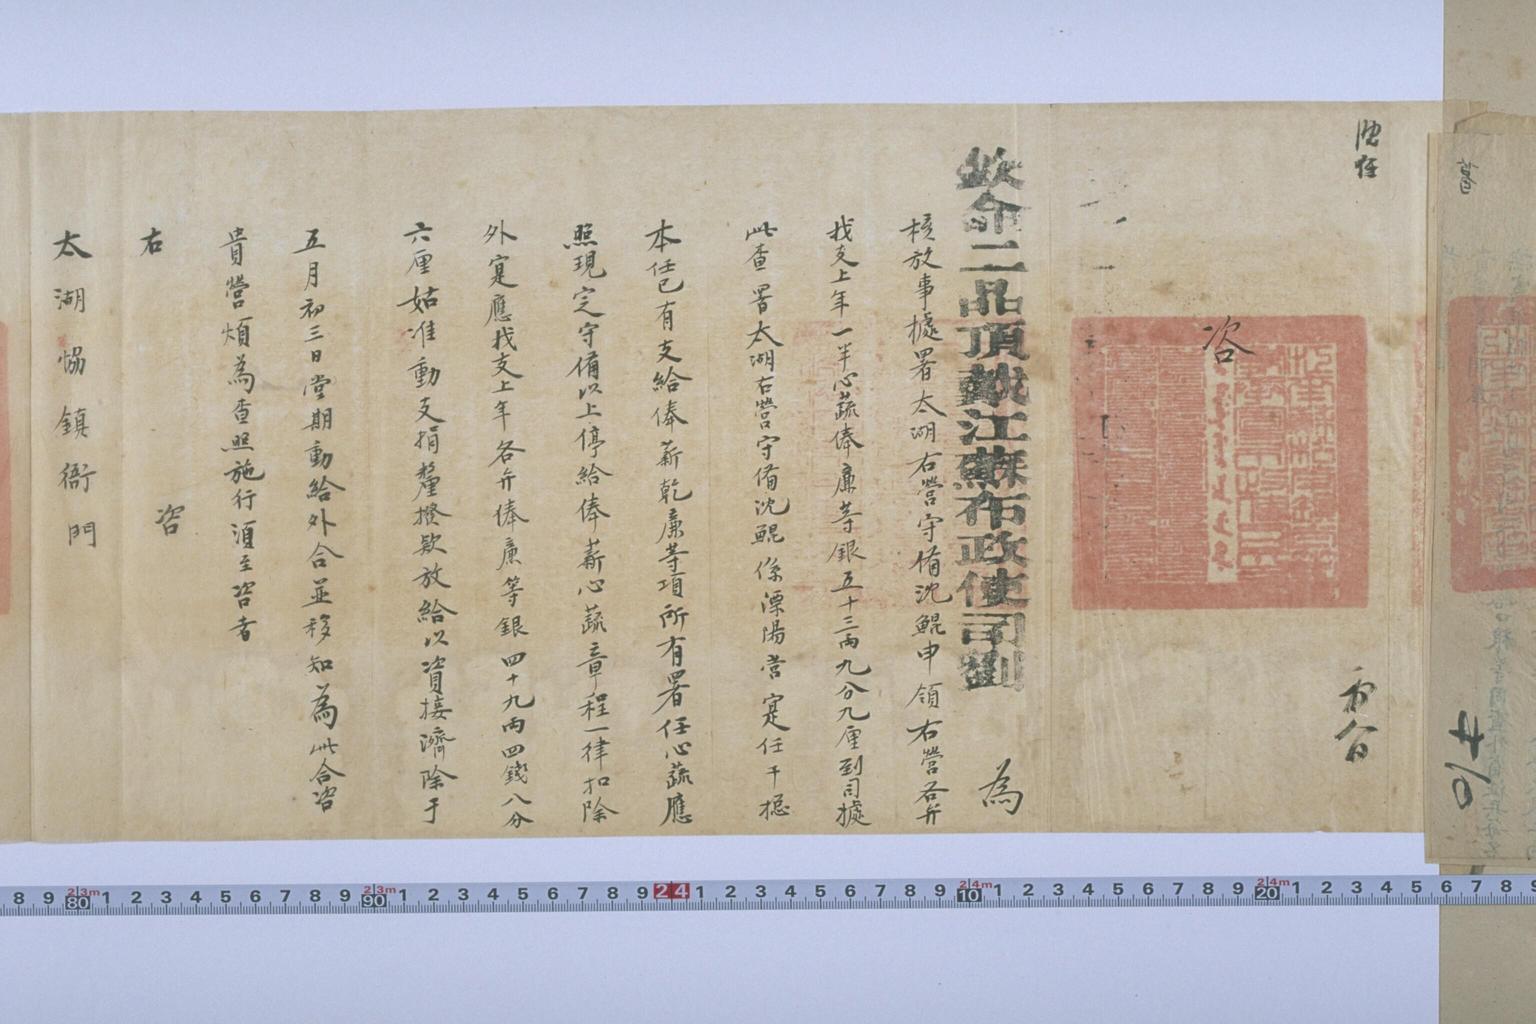 咨
欽命二品頂戴江蘇布政使司劉 為
核放事據署太湖右營守備沈鯤申領右營各弁
找支上年一半心蔬俸廉等銀五十三兩九分九厘到司據
此查署太湖右營守備沈鯤係溧陽營寔任千總
本任已有支給俸薪乾廉等項所有署任心蔬應
照現定守備以上停給俸薪心蔬章程一律扣除
外寔應找支上年各弁俸廉等銀四十九兩四錢八分
六厘姑准動支捐釐撥款放給以資接濟除于
五月初三日堂期動給外合並移知為此合咨
貴營煩為查照施行須至咨者
右 咨
太湖協鎮衙門